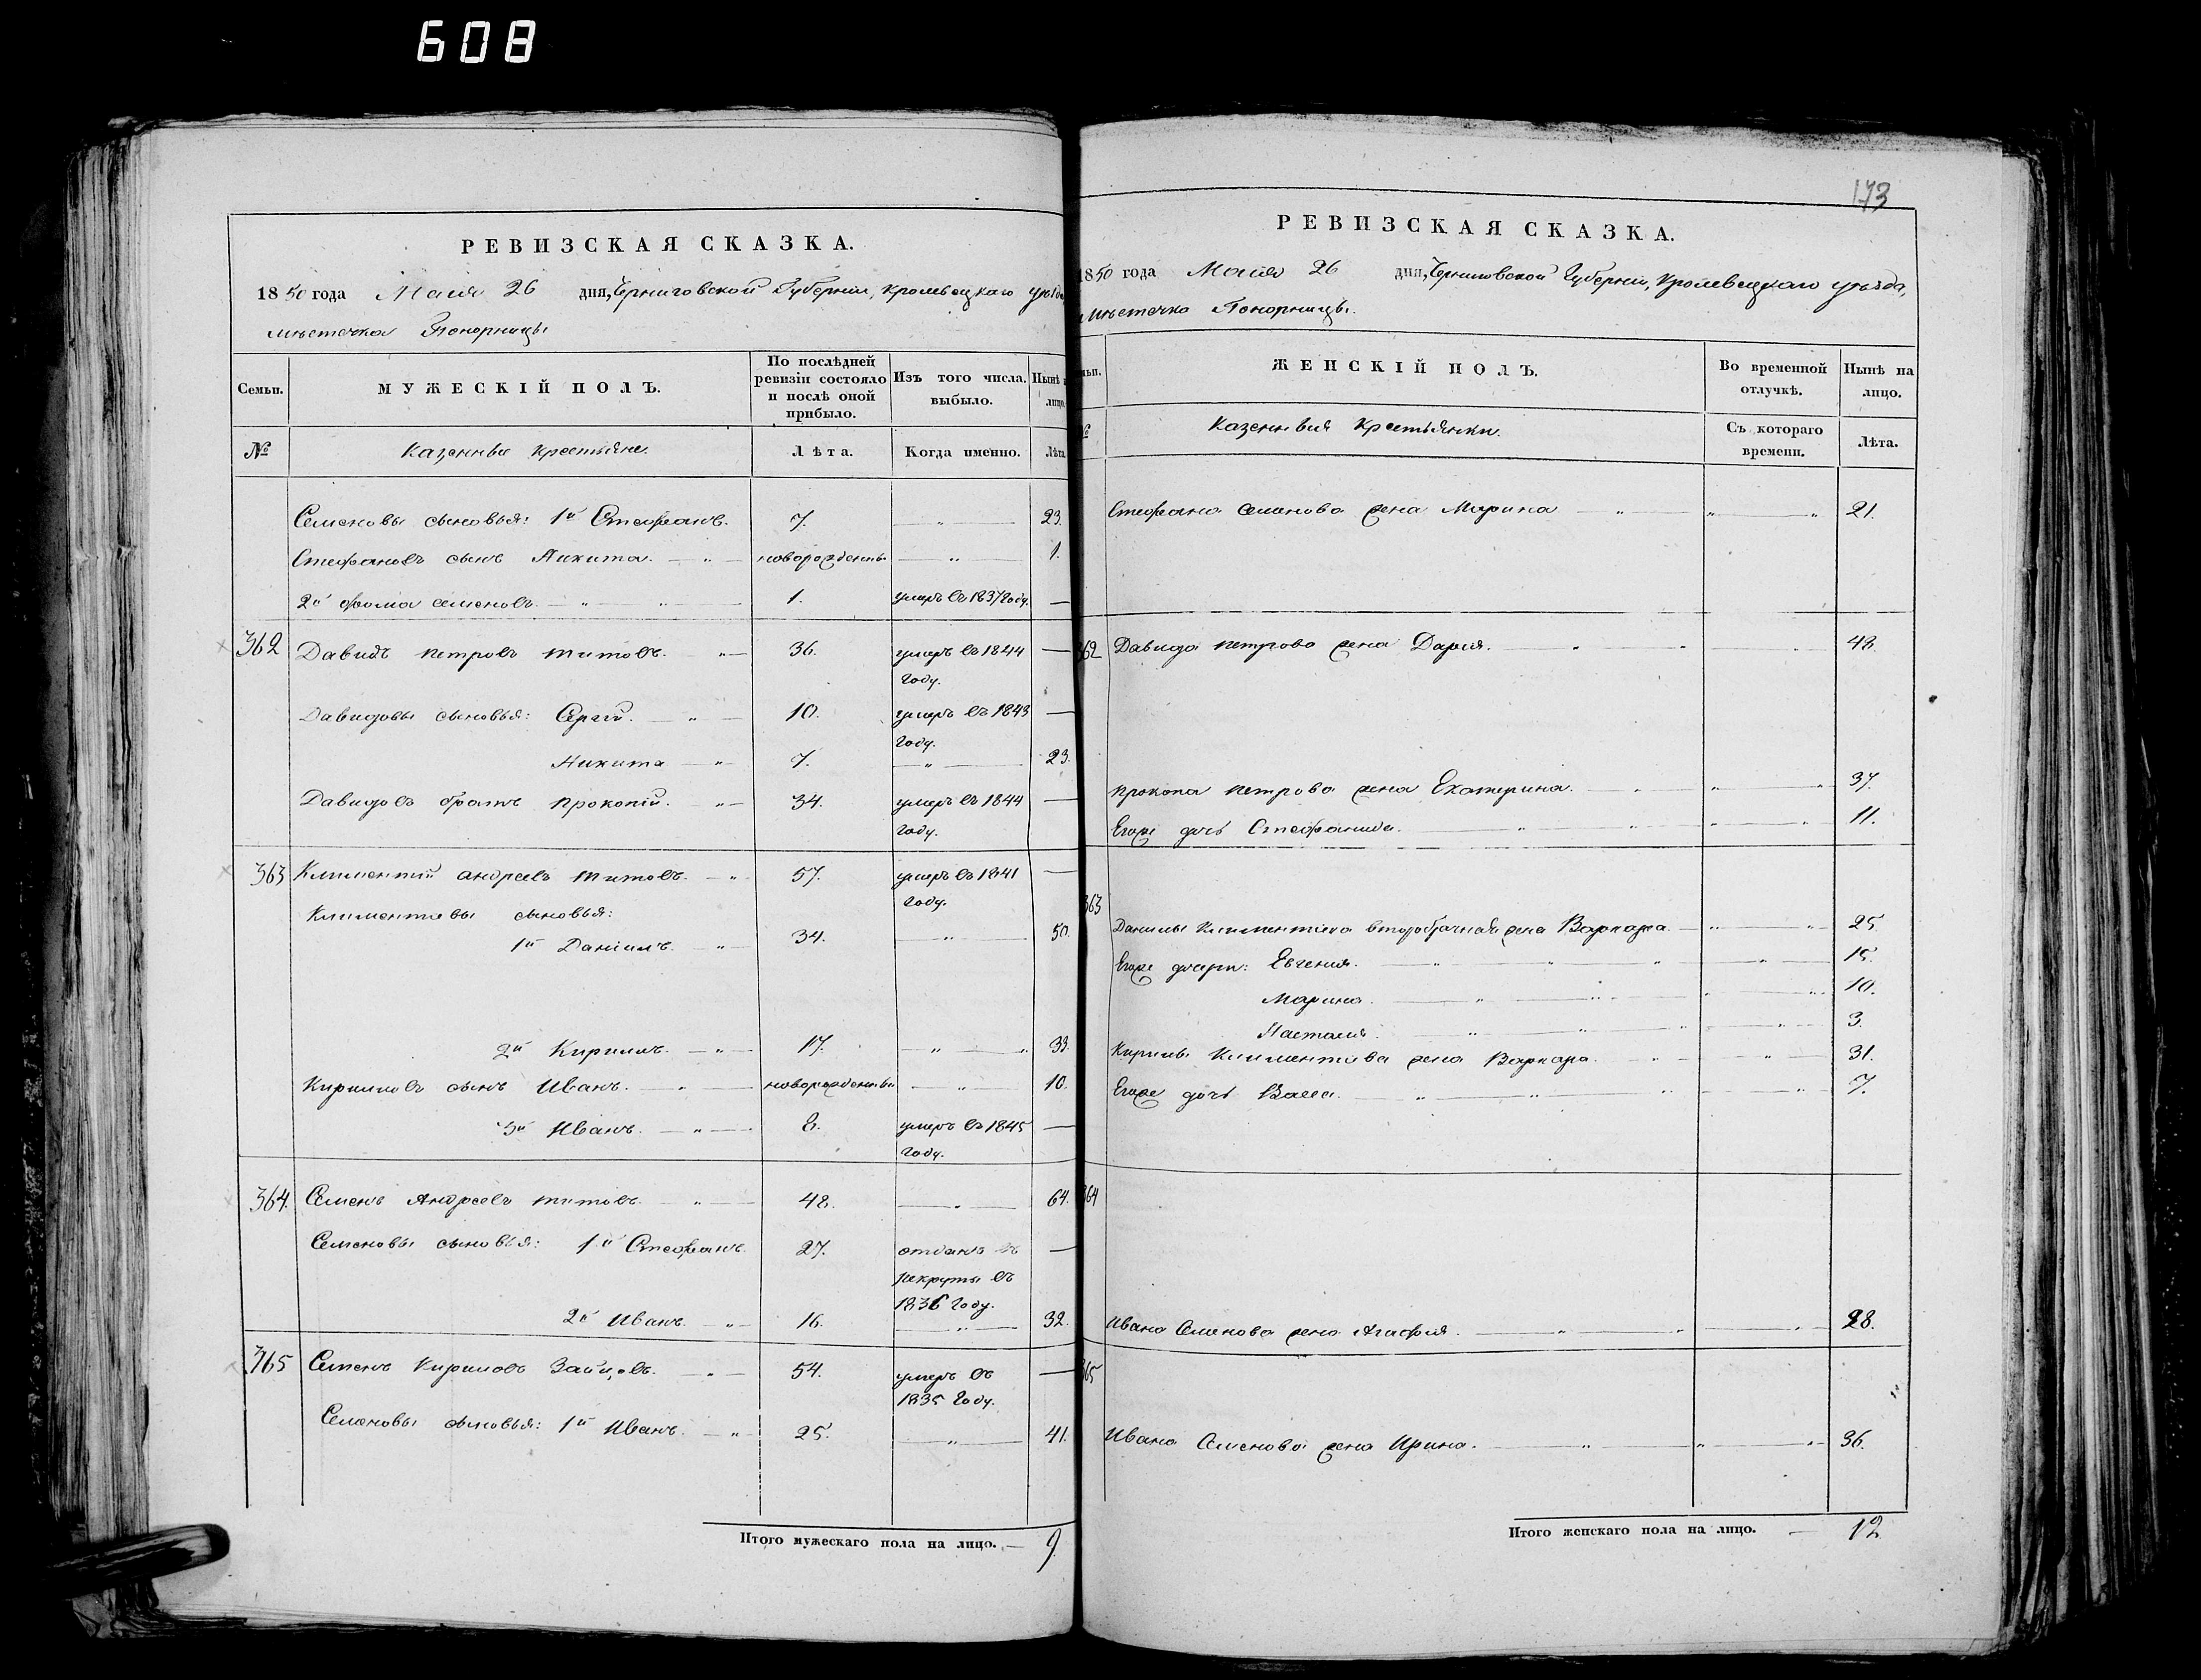 608
РЕВИЗСКАЯ СКАЗКА.
1850 года Маія 26 дня, Черниговской Губерніи, Кролевецкаго уѣзда
мѣстечка Понорницы
Семьи.
МУЖЕСКІЙ ПОЛЪ.
По послѣдней ревизіи состояло и послѣ оной прибыло.
Изъ того числа выбыло.
Нынѣ на лицо.
№
Казенные крестьяне.
Лѣта.
Когда именно.
Лѣта.
Семеновы сыновья: 1й Стефанъ. 7. — „ — 23.
Стефановъ сынъ Никита. — „ — новорожденъ — „ — 1.
2й Фома Семеновъ. — „ — 1. умеръ въ 1837 году. —
362 Давидъ Петровъ Титовъ. „ — 36. умеръ въ 1844 —
году.
Давидовы сыновья: Сергій. — „ — 10. умеръ въ 1843 —
году.
Никита — „ 7. — „ — 23.
Давидовъ братъ Прокопій. „ — 34. умеръ въ 1844 —
году.
363 Климентій Андреевъ Титовъ. — „ 57. умеръ въ 1841 —
году.
Климентіевы сыновья:
1й Даніилъ. — „ 34. — „ — 50.
2й Кирилъ. — „ — 17. — „ — 33.
Кириловъ сынъ Иванъ. — „ — новорожденный — „ — 10.
3й Иванъ. — „ — 8. умеръ въ 1845 —
году.
364. Семенъ Андреевъ Титовъ. — „ — 48. — „ — 64.
Семеновы сыновья: 1й Стефанъ. 27. отданъ въ —
рекруты въ
1836 году.
2й Иванъ. — „ 16. — „ — 32.
365 Семенъ Кириловъ Зайцовъ. — „ — 54. умеръ въ —
1835 году.
Семеновы сыновья: 1й Иванъ. — „ 25. — „ — 41.
Итого мужескаго пола на лицо. — 9.
173
РЕВИЗСКАЯ СКАЗКА.
1850 года Маія 26 дня, Черниговской Губерніи, Кролевецкаго уѣзда,
мѣстечка Понорницы.
ЖЕНСКІЙ ПОЛЪ.
Во временной отлучкѣ.
Нынѣ на лицо.
Казенныя крестьянки.
Съ котораго времени.
Лѣта.
Стефана Семенова жена Марина — „ — „ — „ 21.
362 Давида Петрова жена Дарія. „ „ „ 48.
Прокопа Петрова жена Екатерина. — „ — „ — „ 37.
Егоже дочь Стефанида. — „ — „ — „ 11.
363
Данилы Климентіева второбрачная жена Варвара. — „ — „ 25.
Егоже дочери: Евгенія. — „ — „ — „ 15.
Марина. — „ — „ — „ 10.
Наталія. „ — „ — „ 3.
Кирилы Климентіева жена Варвара. — „ — „ 31.
Егоже дочь Васса. — „ — „ — „ 7.
364
Ивана Семенова жена Агафія. — „ — „ — „ 28.
365
Ивана Семенова жена Ирина. — „ — „ — „ 36.
Итого женскаго пола на лицо. — 12